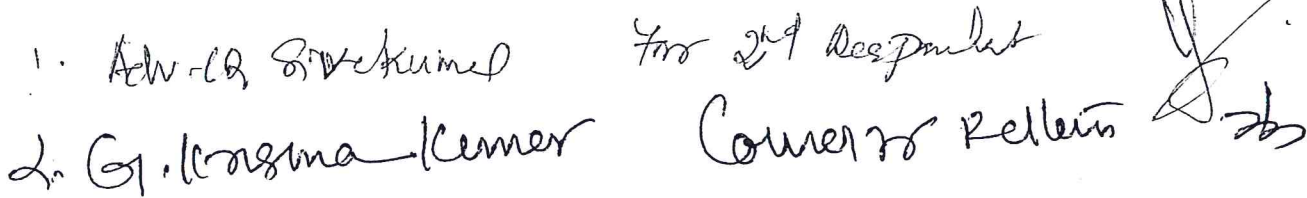 1. Adv. R. Sivakumar For 2nd Respondent
2. G. Krishna Kumar Counsel for